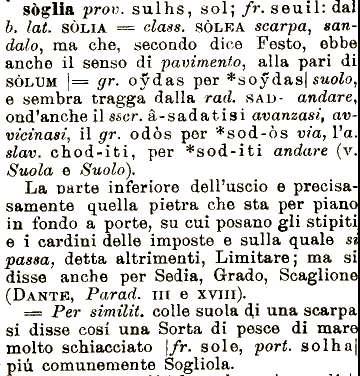 sòglia prov. sulhs, sol; fr. seuil: dal
b. lat. SÒLIA = class. SÒLEA scarpa, san-
dalo, ma che, secondo dice Festo, ebbe
anche il senso di pavimento, alla pari di
SÒLUM |= gr. oỹdas per *soỹdas| suolo,
e sembra tragga dalla rad. SAD- andare,
ond'anche il sscr. â-sadatisi avanzasi, av-
vicinasi, il gr. odòs per *sod-òs via, l'a.
slav. chod-iti, per *sod-iti andare (v.
Suola e Suolo).
La parte inferiore dell'uscio e precisa-
samente quella pietra che sta per piano
in fondo a porte, su cui posano gli stipiti
e i cardini delle imposte e sulla quale si
passa, detta altrimenti, Limitare; ma si
disse anche per Sedia, Grado, Scaglione
(DANTE, Parad. III e XVIII).
= Per similit. colle suola di una scarpa
si disse cosí una Sorta di pesce di mare
molto schiacciato |fr. sole, port. solha|
piú comunemente Sogliola.